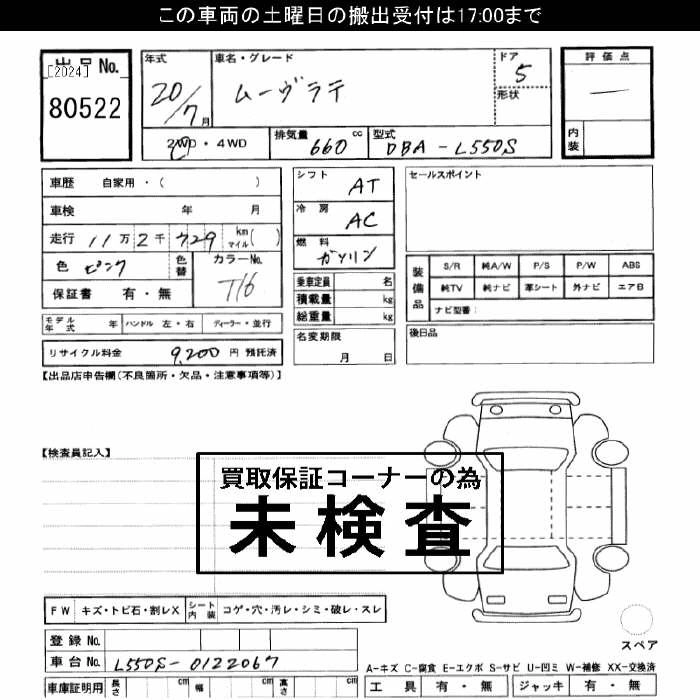 この車両の土曜日の搬出受付は17:00まで
出品No.
[2024]
80522
年式
20/7月
車名・グレード
ムーヴラテ
ドア
5
形状
評価点
内装
2WD・4WD
排気量 660 cc
型式 DBA-L550S
車歴 自家用・( )
車検 年 月
走行 11万2千729 km マイル( )
色 ピンク 色替
カラーNo. T16
保証書 有・無
モデル年式 年 ハンドル 左・右 ディーラー・並行
リサイクル料金 9,200円 預託済
シフト AT
冷房 AC
燃料 ガソリン
乗車定員 名
積載量 kg
総重量 kg
名変期限
月 日
セールスポイント
装備品
S/R 純A/W P/S P/W ABS
純TV 純ナビ 革シート 外ナビ エアB
ナビ型番:
後日品
【出品店申告欄(不良箇所・欠品・注意事項等)】
【検査員記入】
買取保証コーナーの為
未検査
FW キズ・トビ石・割レX シート内装 コゲ・穴・汚レ・シミ・破レ・スレ
登録No.
車台No. L550S-0122067
車庫証明用 長さ cm 幅 cm 高さ cm
スペア
A-キズ C-腐食 E-エクボ S-サビ U-凹ミ W-補修 XX-交換済
工具 有・無 ジャッキ 有・無